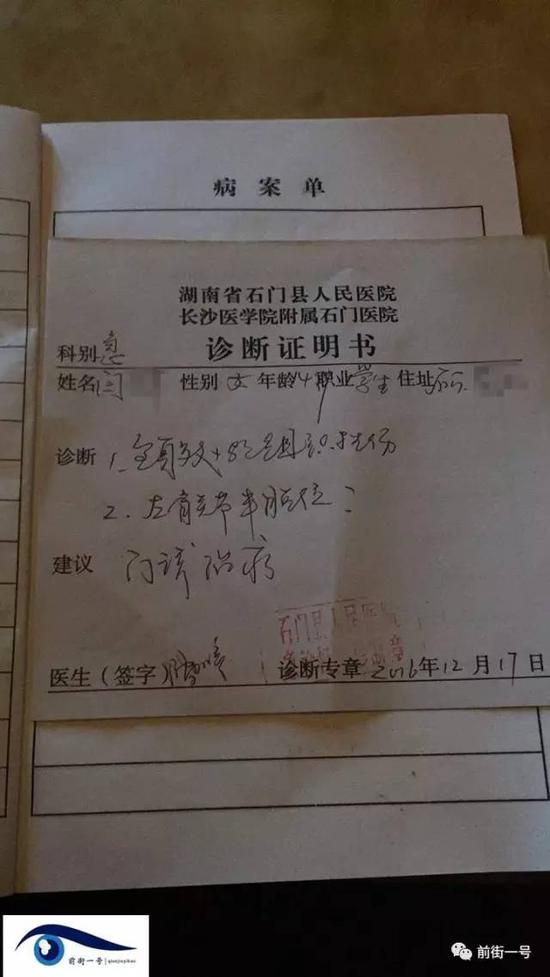 病案单
湖南省石门县人民医院
长沙医学院附属石门医院
科别 急 诊断证明书
姓名 闫 性别 女 年龄 14 职业 学生 住址
诊断 1. 全身多处软组织挫伤
2. 左肩关节半脱位?
建议 门诊治疗
医生(签字) 诊断专章 2016年12月17日
石门县人民医院
前街一号 qianjieyihao
前街一号